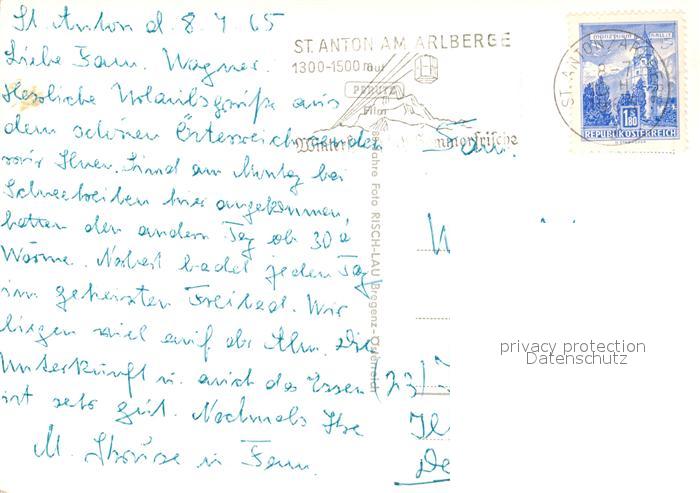 St. Anton d. 8. 7. 65
Liebe Fam. Wagner.
Herzliche Urlaubsgrüße aus
dem schönen Österreich senden
wir Ihnen. Sind am Montag bei
Schneetreiben hier angekommen,
hatten den andern Tag ab 30°
Wärme. Norbert badet jeden Tag
im geheizten Freibad. Wir
liegen viel auf der Alm. Die
Unterkunft u. auch das Essen
ist sehr gut. Nochmals Ihre
M. u. Fam.
ST. ANTON AM ARLBERG
1300-1500 m
PERUTZ
Film
Winter
Sommerfrische
Jahre Foto RISCH-LAU Bregenz-Österreich
ST. ANTON
1.80
REPUBLIK ÖSTERREICH
Fam.
W
(23)
De
privacy protection
Datenschutz